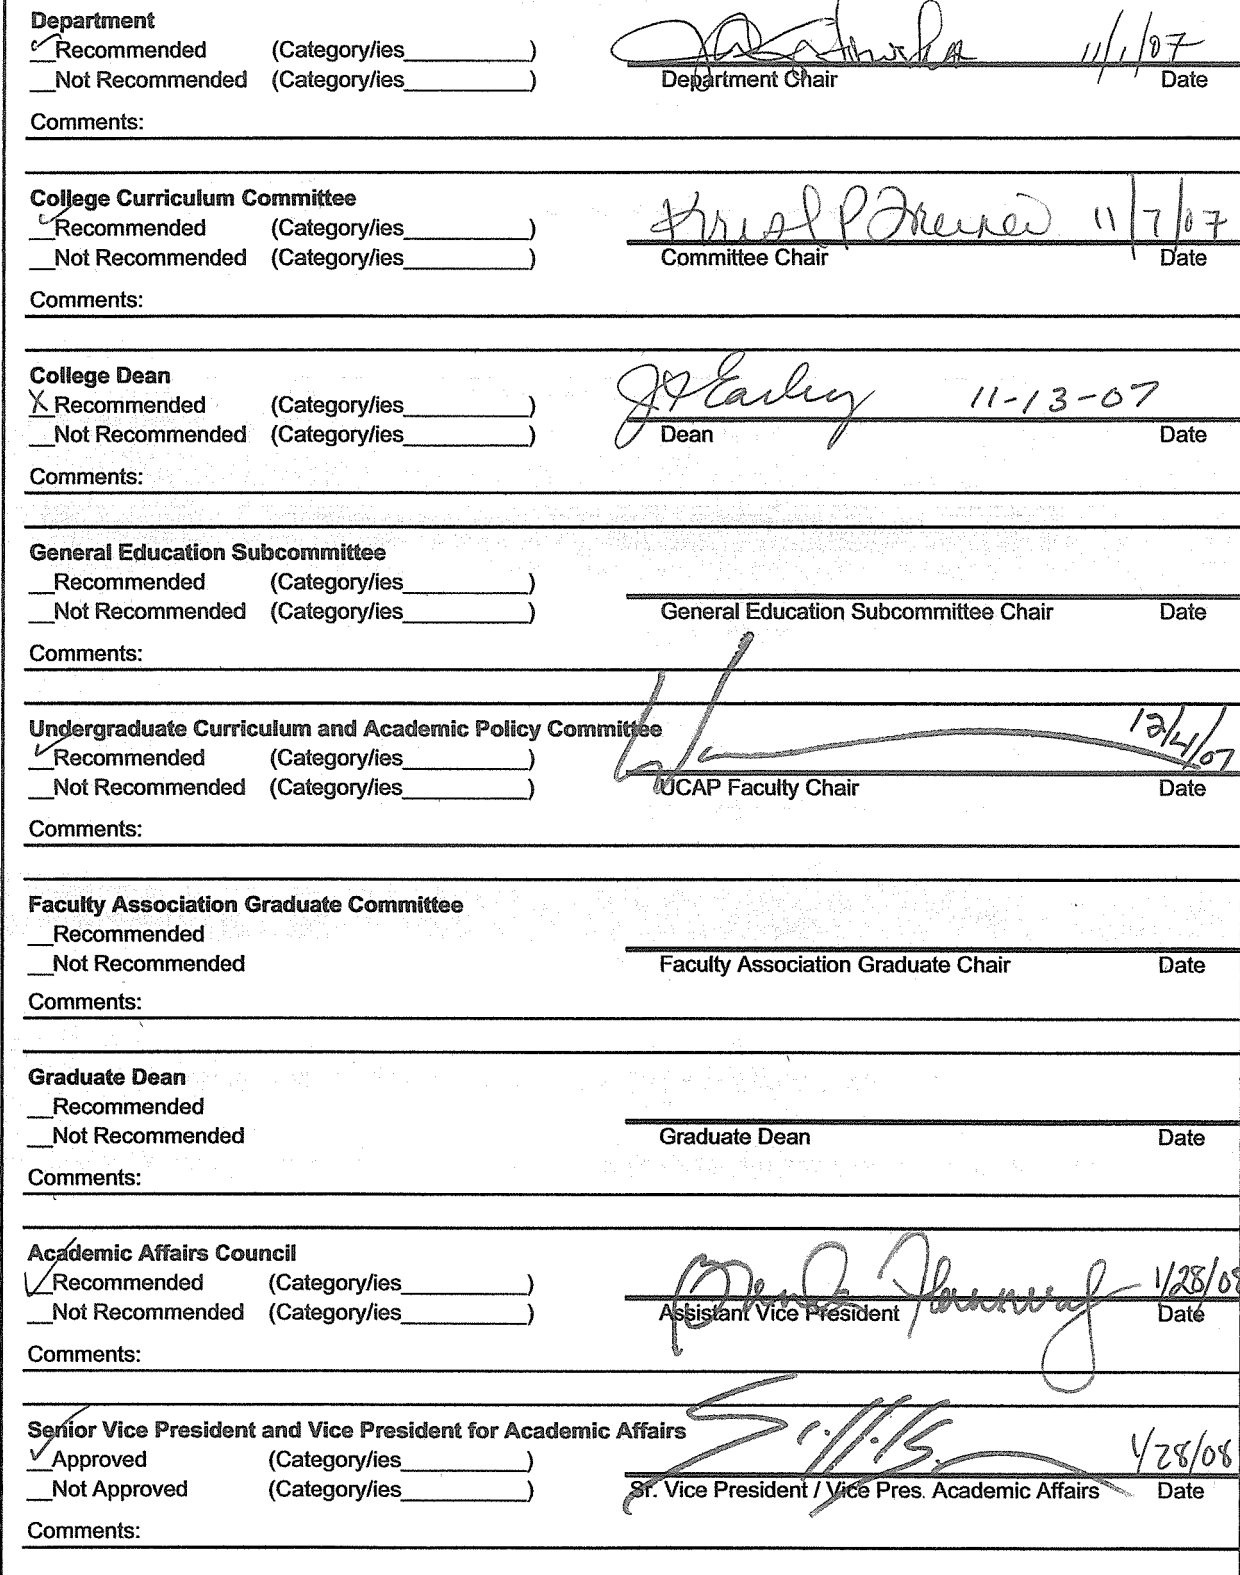 Department
__Recommended (Category/ies__________)
11/1/07
__Not Recommended (Category/ies__________)
Department Chair Date
Comments:
College Curriculum Committee
__Recommended (Category/ies__________)
11/7/07
__Not Recommended (Category/ies__________)
Committee Chair Date
Comments:
College Dean
X Recommended (Category/ies__________)
11-13-07
__Not Recommended (Category/ies__________)
Dean Date
Comments:
General Education Subcommittee
__Recommended (Category/ies__________)
__Not Recommended (Category/ies__________)
General Education Subcommittee Chair Date
Comments:
Undergraduate Curriculum and Academic Policy Committee
12/4/07
__Recommended (Category/ies__________)
__Not Recommended (Category/ies__________)
UCAP Faculty Chair Date
Comments:
Faculty Association Graduate Committee
__Recommended
__Not Recommended
Faculty Association Graduate Chair Date
Comments:
Graduate Dean
__Recommended
__Not Recommended
Graduate Dean Date
Comments:
Academic Affairs Council
__Recommended (Category/ies__________)
1/28/08
__Not Recommended (Category/ies__________)
Assistant Vice President Date
Comments:
Senior Vice President and Vice President for Academic Affairs
__Approved (Category/ies__________)
1/28/08
__Not Approved (Category/ies__________)
Sr. Vice President / Vice Pres. Academic Affairs Date
Comments: